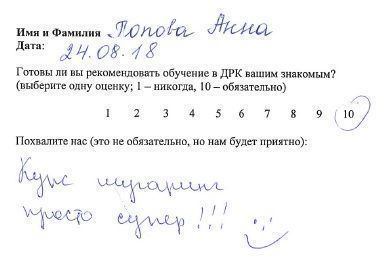 Имя и Фамилия Попова Анна
Дата: 24.08.18
Готовы ли вы рекомендовать обучение в ДРК вашим знакомым?
(выберите одну оценку; 1 – никогда, 10 – обязательно)
1 2 3 4 5 6 7 8 9 10
Похвалите нас (это не обязательно, но нам будет приятно):
Курс шугаринг
просто супер!!!